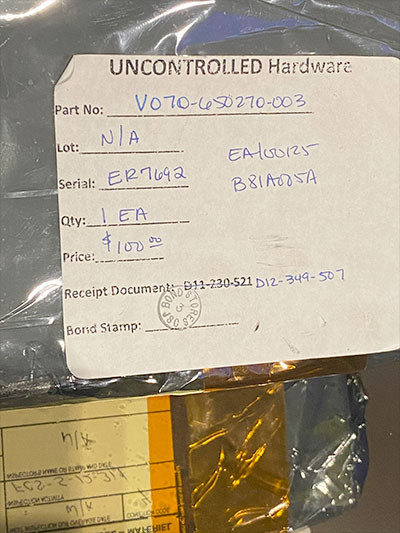 UNCONTROLLED Hardware
Part No: V070-650270-003
Lot: N/A
EA100125
Serial: ER7692
B81A005A
Qty: 1 EA
Price: $100.00
Receipt Document: D11-230-521 D12-349-507
Bond Stamp:
BOND STORES
3
N/A
N/A
MATERIEL